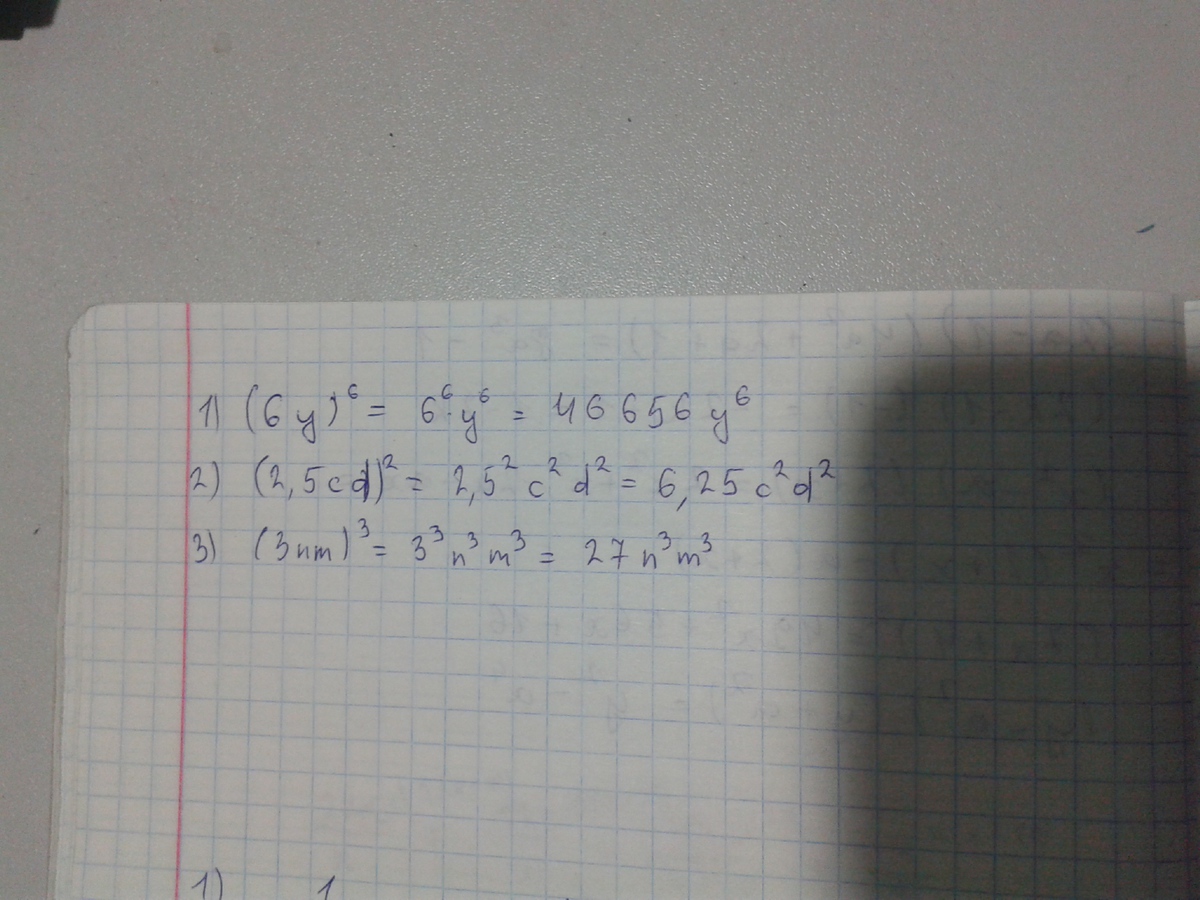 1) (6y)⁶ = 6⁶·y⁶ = 46656y⁶
2) (2,5cd)² = 2,5² c² d² = 6,25c²d²
3) (3nm)³ = 3³n³m³ = 27n³m³
1) 1